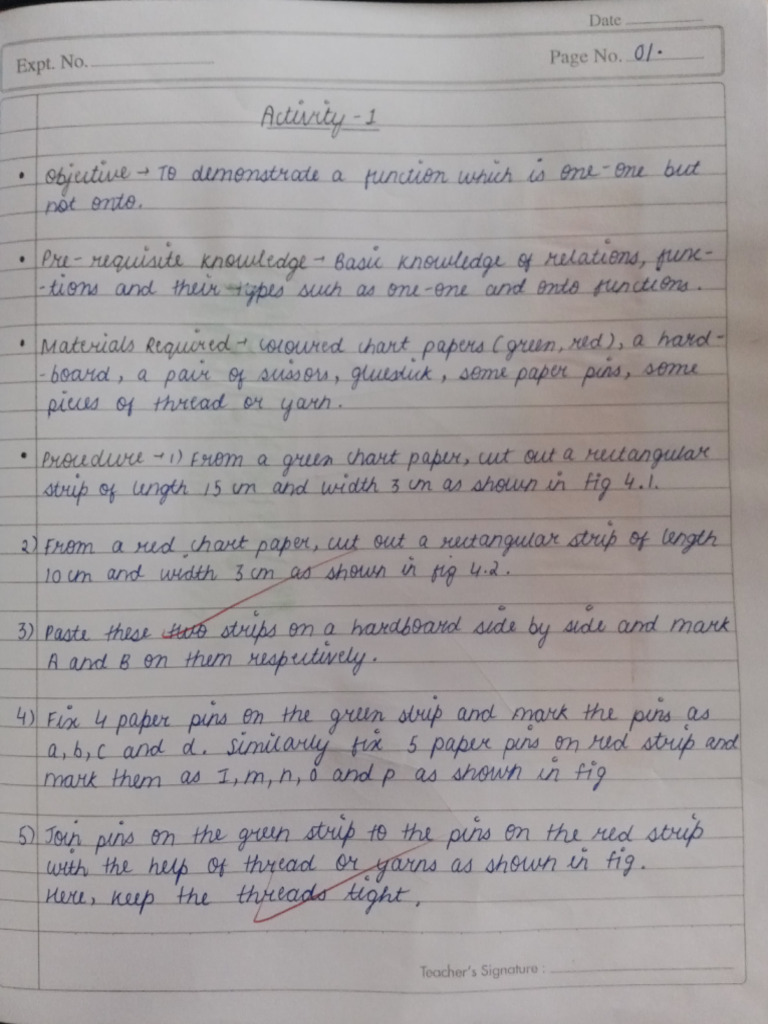 Date
Expt. No.
Page No. 01.
Activity - 1
• Objective → To demonstrate a function which is one-one but
not onto.
• Pre-requisite knowledge → Basic knowledge of relations, func-
-tions and their types such as one-one and onto functions.
• Materials Required → coloured chart papers (green, red), a hard-
-board, a pair of scissors, gluestick, some paper pins, some
pieces of thread or yarn.
• Procedure → 1) From a green chart paper, cut out a rectangular
strip of length 15 cm and width 3 cm as shown in fig 4.1.
2) From a red chart paper, cut out a rectangular strip of length
10 cm and width 3 cm as shown in fig 4.2.
3) Paste these two strips on a hardboard side by side and mark
A and B on them respectively.
4) Fix 4 paper pins on the green strip and mark the pins as
a, b, c and d. Similarly fix 5 paper pins on red strip and
mark them as I, m, n, o and p as shown in fig
5) Join pins on the green strip to the pins on the red strip
with the help of thread or yarns as shown in fig.
Here, keep the threads tight.
Teacher's Signature :